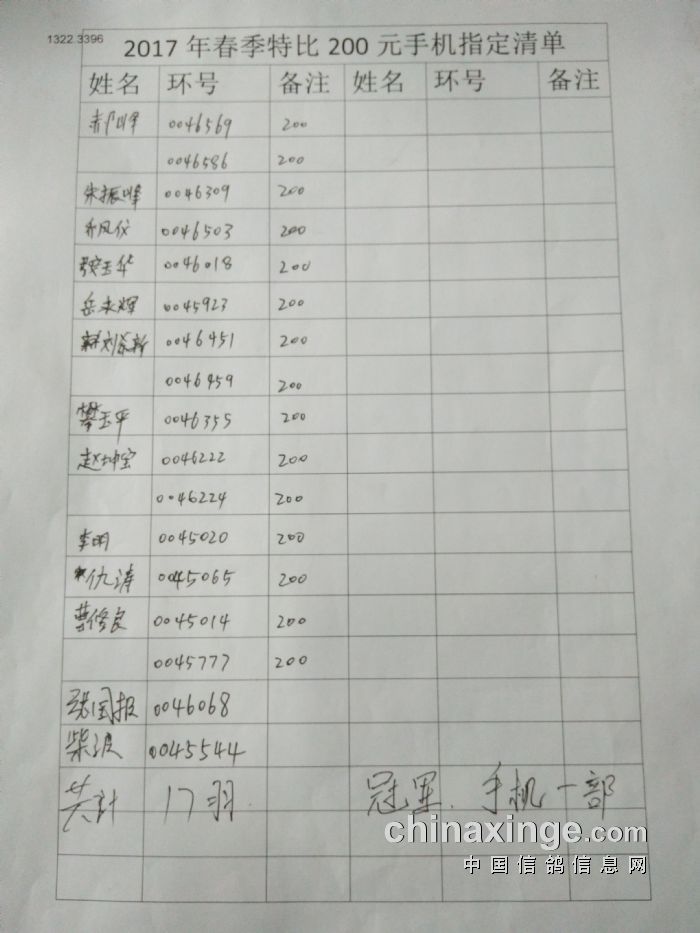 1322 3396
2017 年春季特比 200 元手机指定清单
姓名 环号 备注 姓名 环号 备注
0046569 200
0046586 200
朱振峰 0046309 200
乔凤仪 0046503 200
玉华 0046018 200
岳永辉 0045923 200
刘 新 0046451 200
0046459 200
樊玉平 0046355 200
赵坤宝 0046222 200
0046224 200
李明 0045020 200
仇涛 0045065 200
曹修良 0045014 200
0045777 200
张国报 0046068
柴波 0045544
共计 17羽. 冠军. 手机一部
chinaxinge.com
中国信鸽信息网